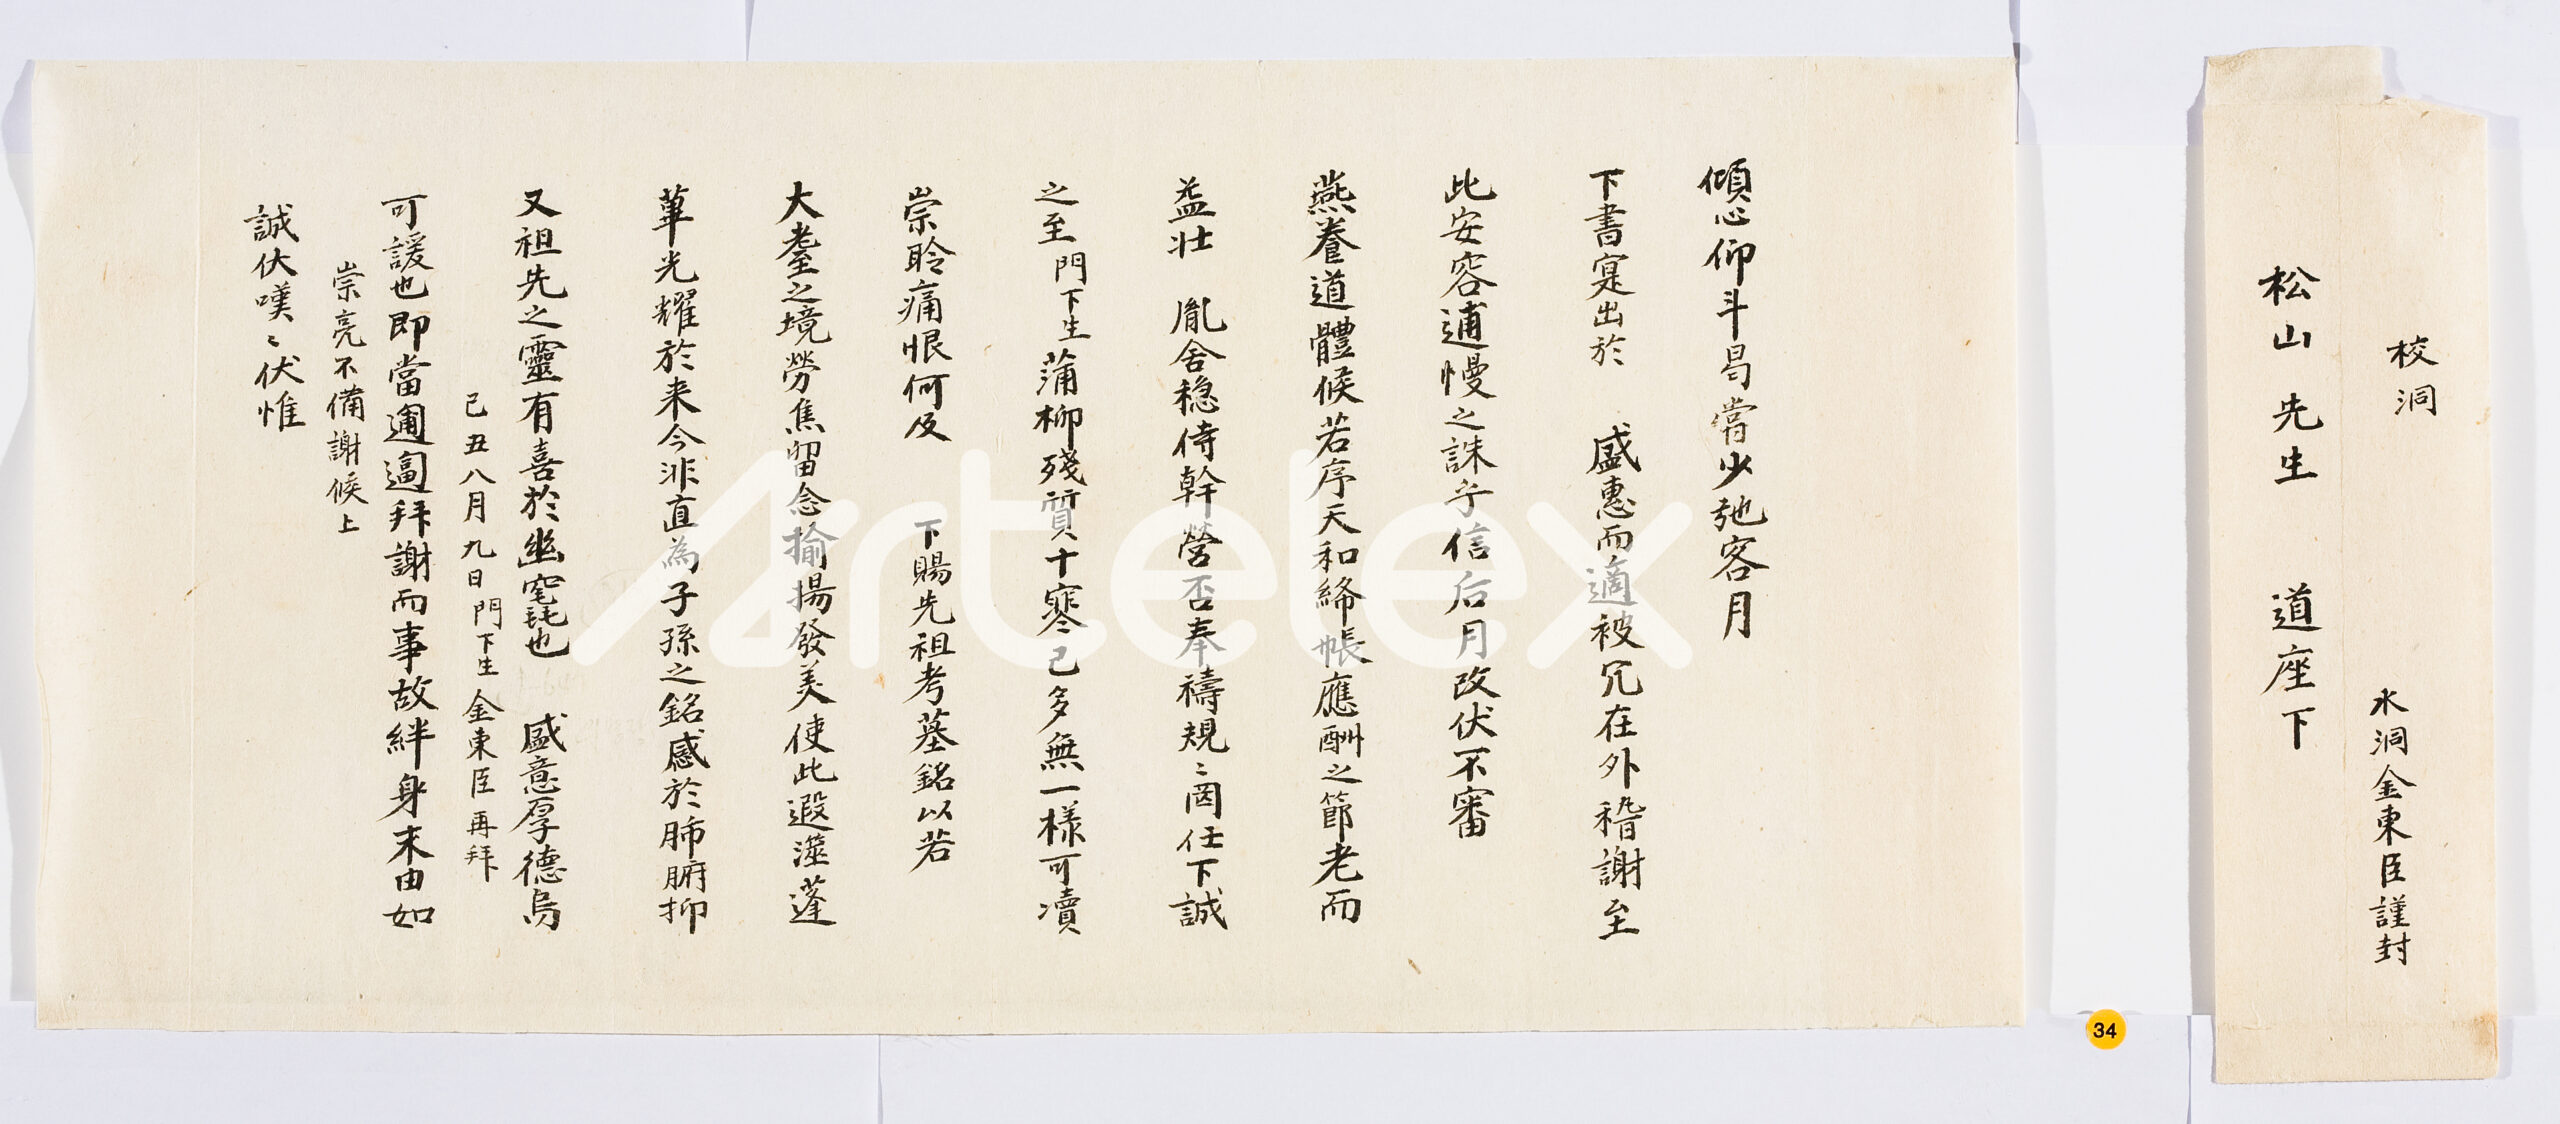 傾心仰斗曷嘗少弛客月
下書寔出於 盛惠而適被冗在外稽謝至
此安容逋慢之誅乎信后月改伏不審
燕養道體候若序天和絳帳應酬之節老而
益壯 胤舍穩侍幹營否奉禱規〻罔任下誠
之至門下生蒲柳殘質十寒已多無一樣可瀆
崇聆痛恨何及 下賜先祖考墓銘以若
大耋之境勞焦留念揄揚發美使此遐澨蓬
蓽光耀於来今非直為子孫之銘感於肺腑抑
又祖先之靈有喜於幽窀也 盛意厚德烏
可諼也即當匍匐拜謝而事故絆身末由如
誠伏嘆〻伏惟
崇亮不備謝候上
己丑八月九日門下生金東臣再拜
校洞
松山先生 道座下
水洞金東臣謹封
34
Artelex